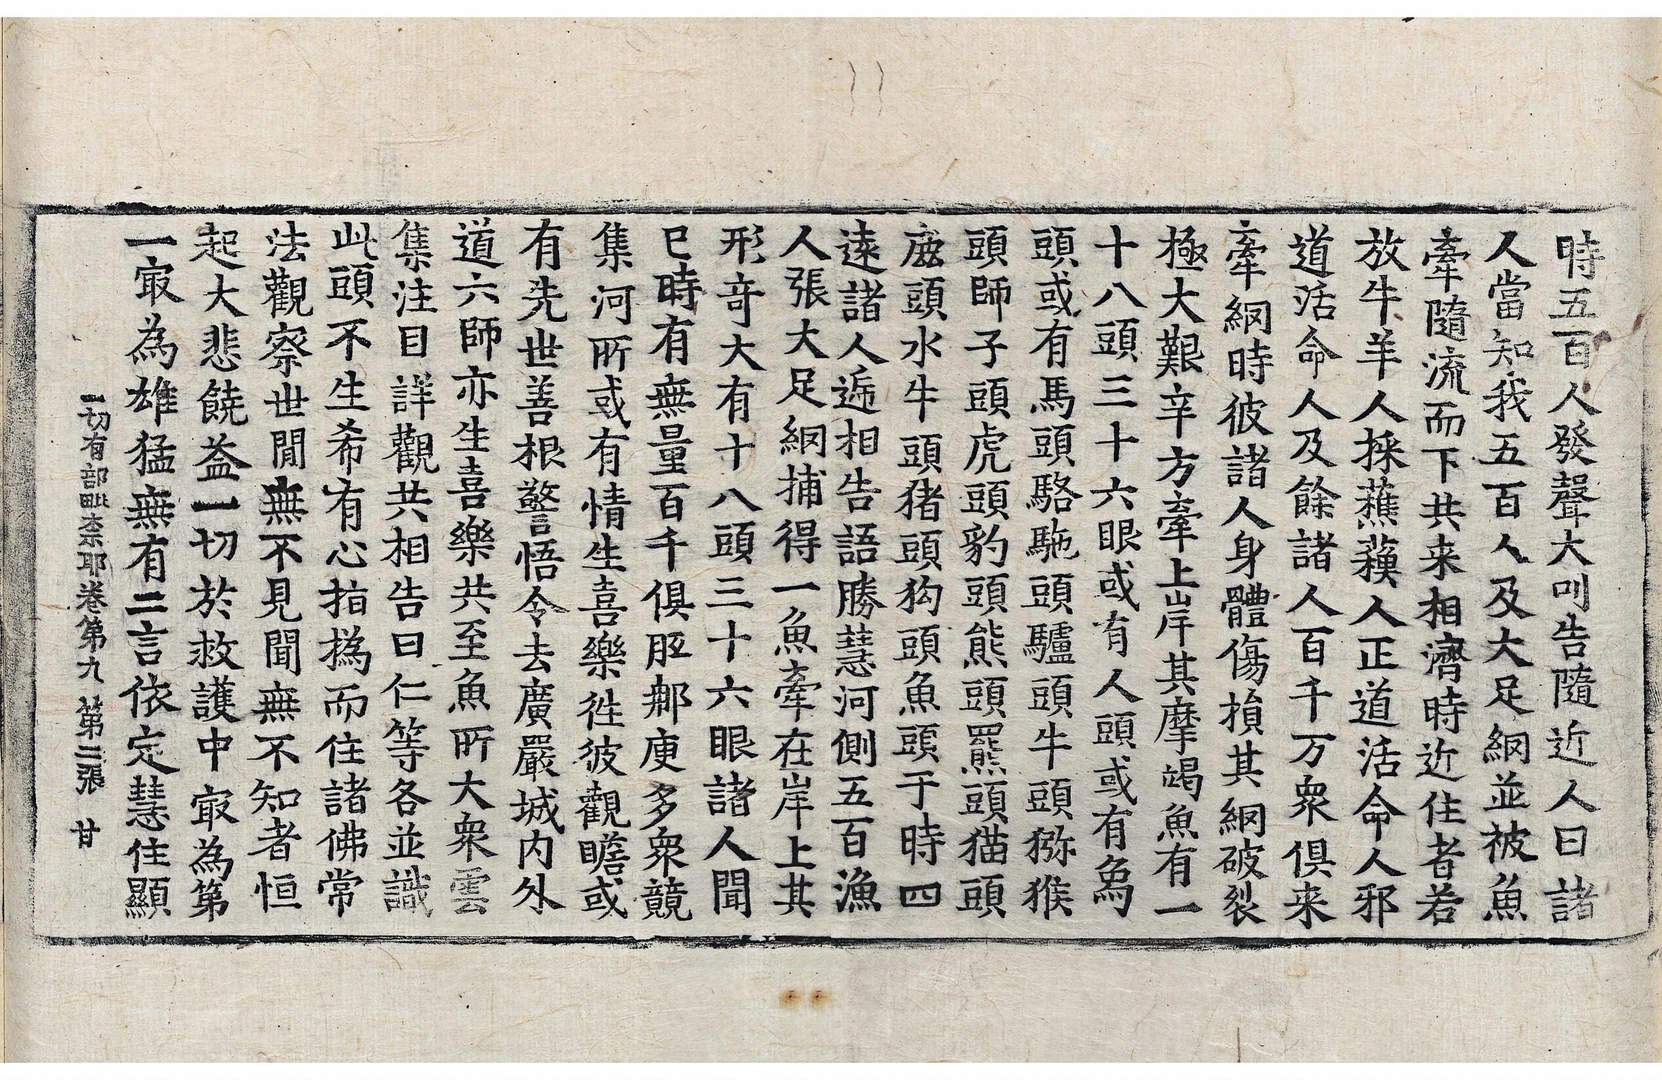 時五百人發聲大叫告隨近人曰諸
人當知我五百人及大足網並被魚
牽隨流而下共来相濟時近住者若
放牛羊人採蕉蕀人正道活命人邪
道活命人及餘諸人百千万衆俱来
牽網時彼諸人身體傷損其網破裂
極大艱辛方牽上岸其摩竭魚有一
十八頭三十六眼或有人頭或有爲
頭或有馬頭駱駞頭驢頭牛頭獼猴
頭師子頭虎頭豹頭熊頭羆頭猫頭
鹿頭水牛頭猪頭狗頭魚頭于時四
遠諸人遞相告語勝慧河側五百漁
人張大足網捕得一魚牽在岸上其
形竒大有十八頭三十六眼諸人聞
巳時有無量百千俱胝郍庾多衆競
集河所或有情生喜樂徃彼觀瞻或
有先世善根警悟令去廣嚴城内外
道六師亦生喜樂共至魚所大衆雲
集注目詳觀共相告曰仁等各並識
此頭不生希有心拍撝而住諸佛常
法觀察世間無不見聞無不知者恒
起大悲饒益一切於救護中㝡為第
一㝡為雄猛無有二言依定慧住顯
一切有部毗柰耶卷第九 第二張 甘